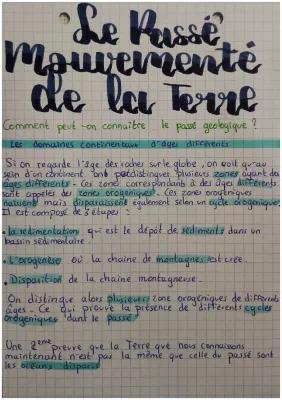 Le Passé
Mouvementé
de la Terre
Comment peut-on connaître le passé géologique ?
Les domaines continentaux d'âges différents
Si on regarde l'âge des roches sur le globe, on voit qu'au
sein d'un continent on peut distinguer plusieurs zones ayant des
âges différents. Ces zones correspondant à des âges différents
sont appelées des zones orogéniques. Ces zones orogéniques
naissent mais disparaissent également selon un cycle orogénique
Il est composé de 3 étapes :
• la sédimentation qui est le dépôt de sédiments dans un
bassin sédimentaire
• L'orogénèse où la chaîne de montagnes est créé.
• Disparition de la chaîne montagneuse.
On distingue alors plusieurs zone orogéniques de différents
âges. Ce qui prouve la présence de différents cycles
orogéniques dans le passé.
Une 2ème preuve que la Terre que nous connaissons
maintenant n'est pas la même que celle du passé sont
les océans disparus